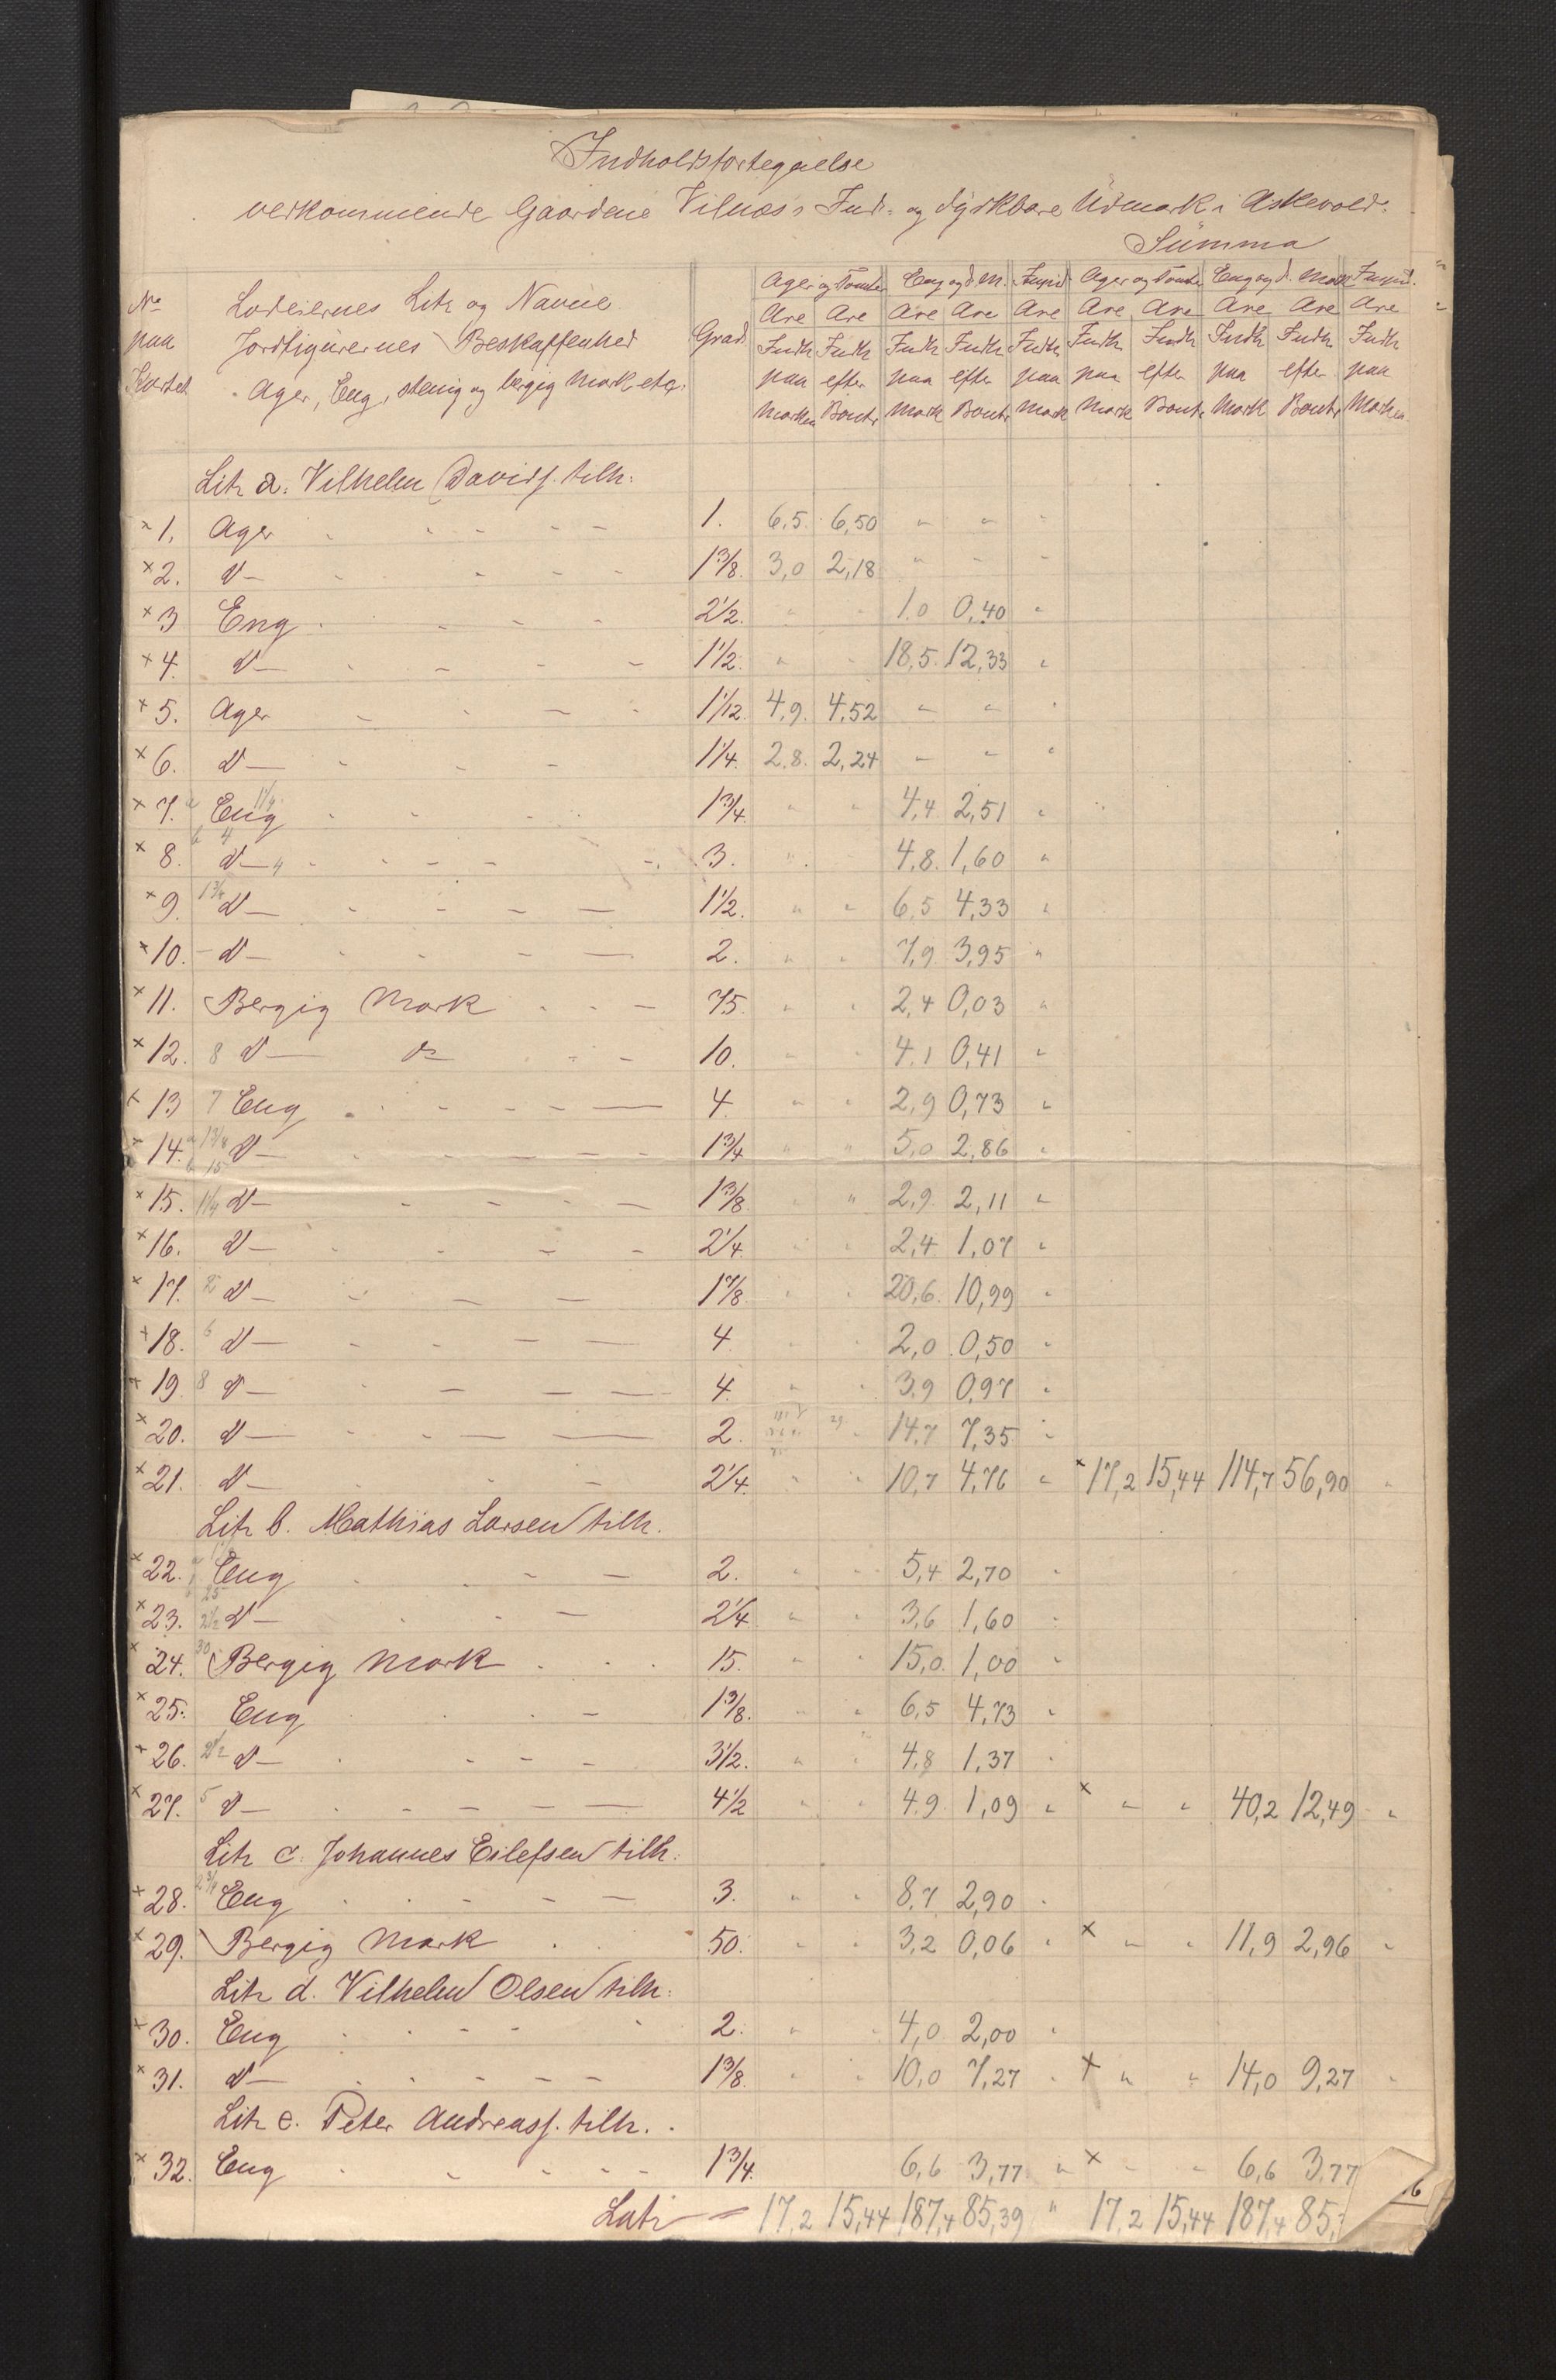 Indholdsfortegnelse
vedkommende Gaardene Vilnæs's Ind- og dyrkbare Udmark i Askevold.
Summa
No paa Kartet | Lodeiernes Litr og Navne Jordfigurernes Beskaffenhed Ager, Eng, stenig og bergig Mark etc. | Grad | Ager og Tomter | Eng og d. M. | Impid. | Ager og Tomter | Eng og d. Mark | Impid.
Are Are Are Are Are Are Are Are Are Are
Indh Indh Indh Indh Indh Indh Indh Indh Indh Indh
paa efter paa efter paa paa efter paa efter paa
Marken Bonit. Mark Bonit. Mark Mark Bonit. Mark Bonit. Marken
Litr a. Vilhelm Davids. tilh.
× 1. Ager 1. 6,5 6,50 " " "
× 2. d— 1 3/8. 3,0 2,18 " " "
× 3 Eng 2 1/2. " " 1,0 0,40 "
× 4. d— 1 1/2. " " 18,5 12,33 "
× 5. Ager 1 1/12. 4,9. 4,52 " " "
× 6. d— 1 1/4. 2,8. 2,24 " " "
× 7. a Eng 1 1/4 1 3/4. " " 4,4 2,51 "
× 8. b 4 d— 3. " " 4,8. 1,60 "
× 9. 1 3/4 d— 1 1/2. " " 6,5 4,33 "
× 10. d— 2. " " 7,9 3,95 "
× 11. Bergig Mark 75. " " 2,4 0,03 "
× 12. 8 d— do 10. " " 4,1 0,41 "
× 13 7 Eng 4. " " 2,9 0,73 "
× 14. a 1 3/4 b 15 d— 1 3/4 " " 5,0 2,86 "
× 15. 1 1/4 d— 1 3/8 " " 2,9. 2,11 "
× 16. d— 2 1/4. " " 2,4 1,07 "
× 17. 2 d— 1 7/8. " " 20,6. 10,99 "
× 18. 6 d— 4 " " 2,0 0,50 "
× 19. 8 d— 4. " " 3,9 0,97 "
× 20. d— 2. " 14,7 7,35 "
× 21. d— 2 1/4. " " 10,7 4,76 " × 17,2 15,44 114,7 56,90 "
Litr b. Mathias Larsen tilh.
× 22. Eng 2. " " 5,4 2,70 "
× 23. 2 1/2 d— 2 1/4 " " 3,6 1,60 "
× 24. 30 Bergig Mark 15. " " 15,0. 1,00 "
× 25. Eng 1 3/8. " " 6,5 4,73 "
× 26. 2 1/2 d— 3 1/2. " " 4,8 1,37 "
× 27. 5 d— 4 1/2 " " 4,9. 1,09 " × " " 40,2 12,49 "
Litr c. Johannes Eilefsen tilh.
× 28. 2 3/4 Eng 3. " " 8,7 2,90 "
× 29. Bergig Mark 50. " " 3,2 0,06 " × " " 11,9 2,96 "
Litr d. Vilhelm Olsen tilh.
× 30. Eng 2. " " 4,0 2,00 "
× 31. d— 1 3/8. " " 10,0 7,27 " × " " 14,0 9,27 "
Litr e. Peter Andreass. tilh.
× 32. Eng 1 3/4. 6,6 3,77 " × " " 6,6 3,77
Latr — 17,2 15,44 187,4 85,39 " 17,2 15,44 187,4 85,